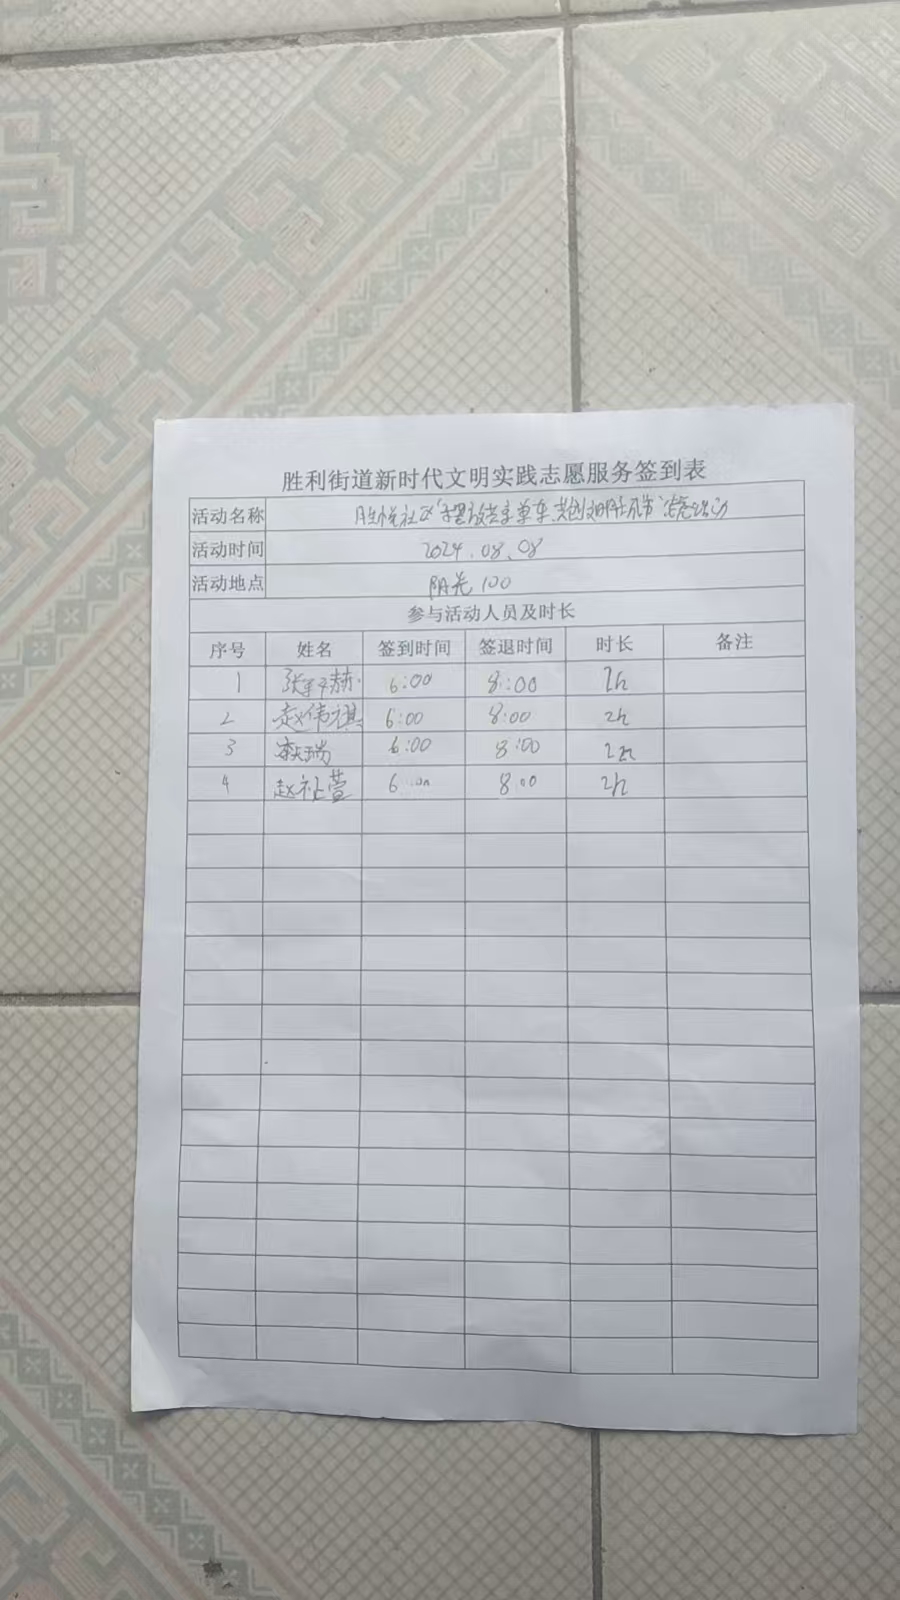 胜利街道新时代文明实践志愿服务签到表
活动名称 胜悦社区"摆放共享单车,共创文明城市"志愿活动
活动时间 2024.08.08
活动地点 阳光100
参与活动人员及时长
序号 姓名 签到时间 签退时间 时长 备注
1 6:00 8:00 2h
2 赵伟祺 6:00 8:00 2h
3 6:00 8:00 2h
4 赵祉萱 6:00 8:00 2h